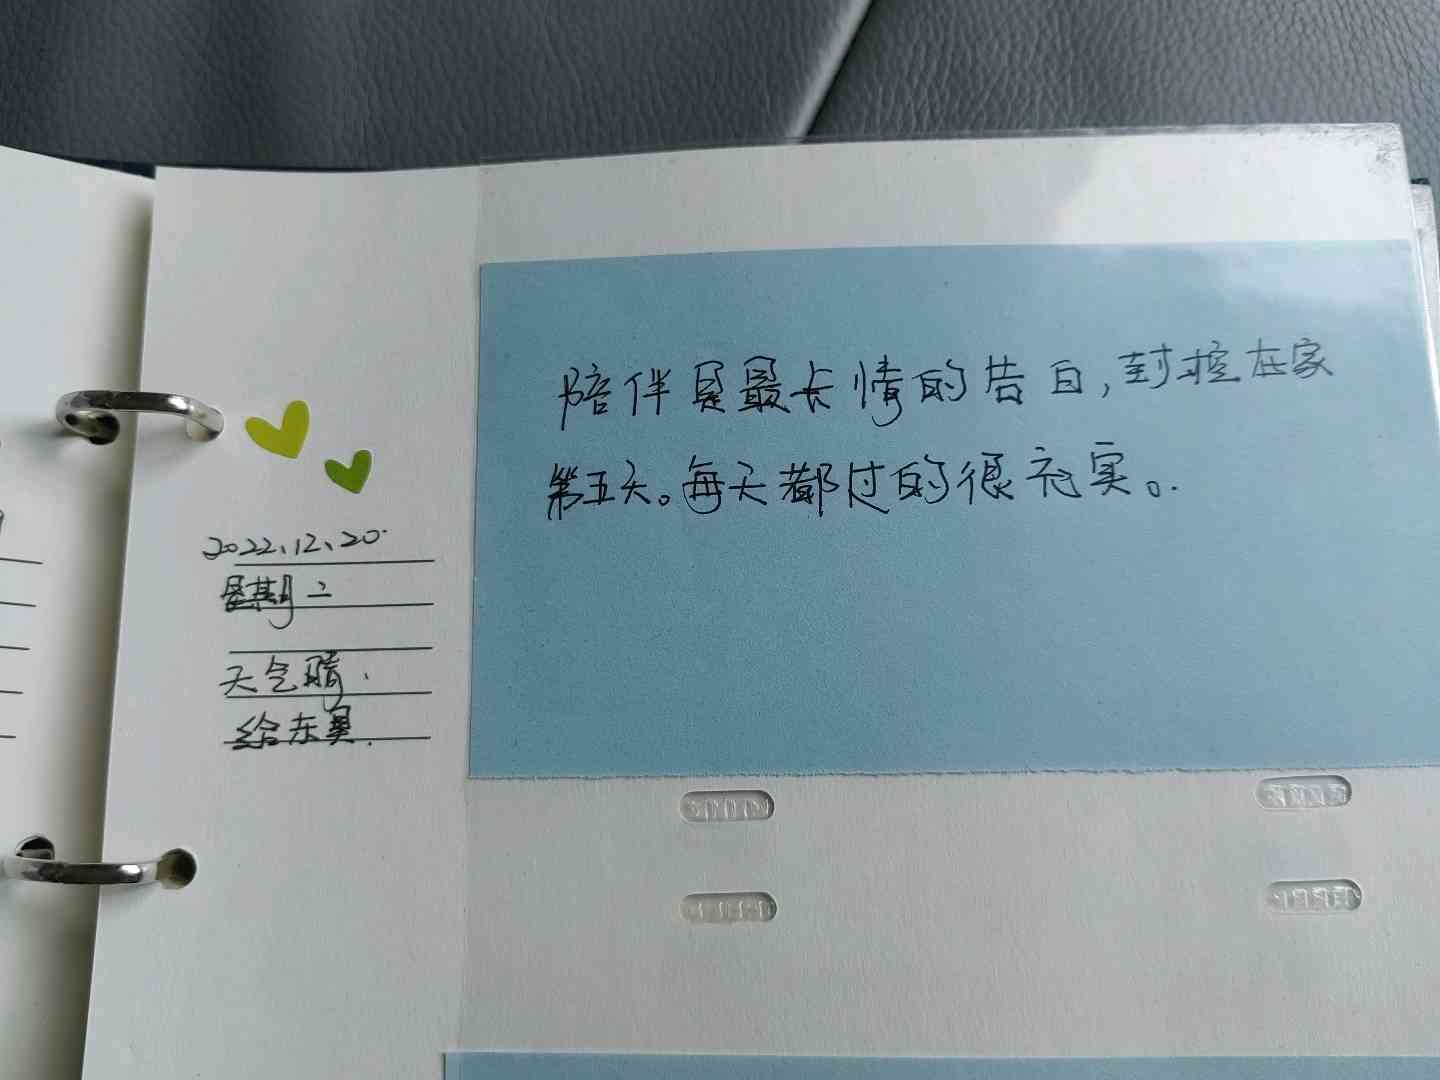 2022、12、20
星期二
天气晴.
给东昊.
陪伴是最长情的告白,封控在家
第五天。每天都过的很充实。